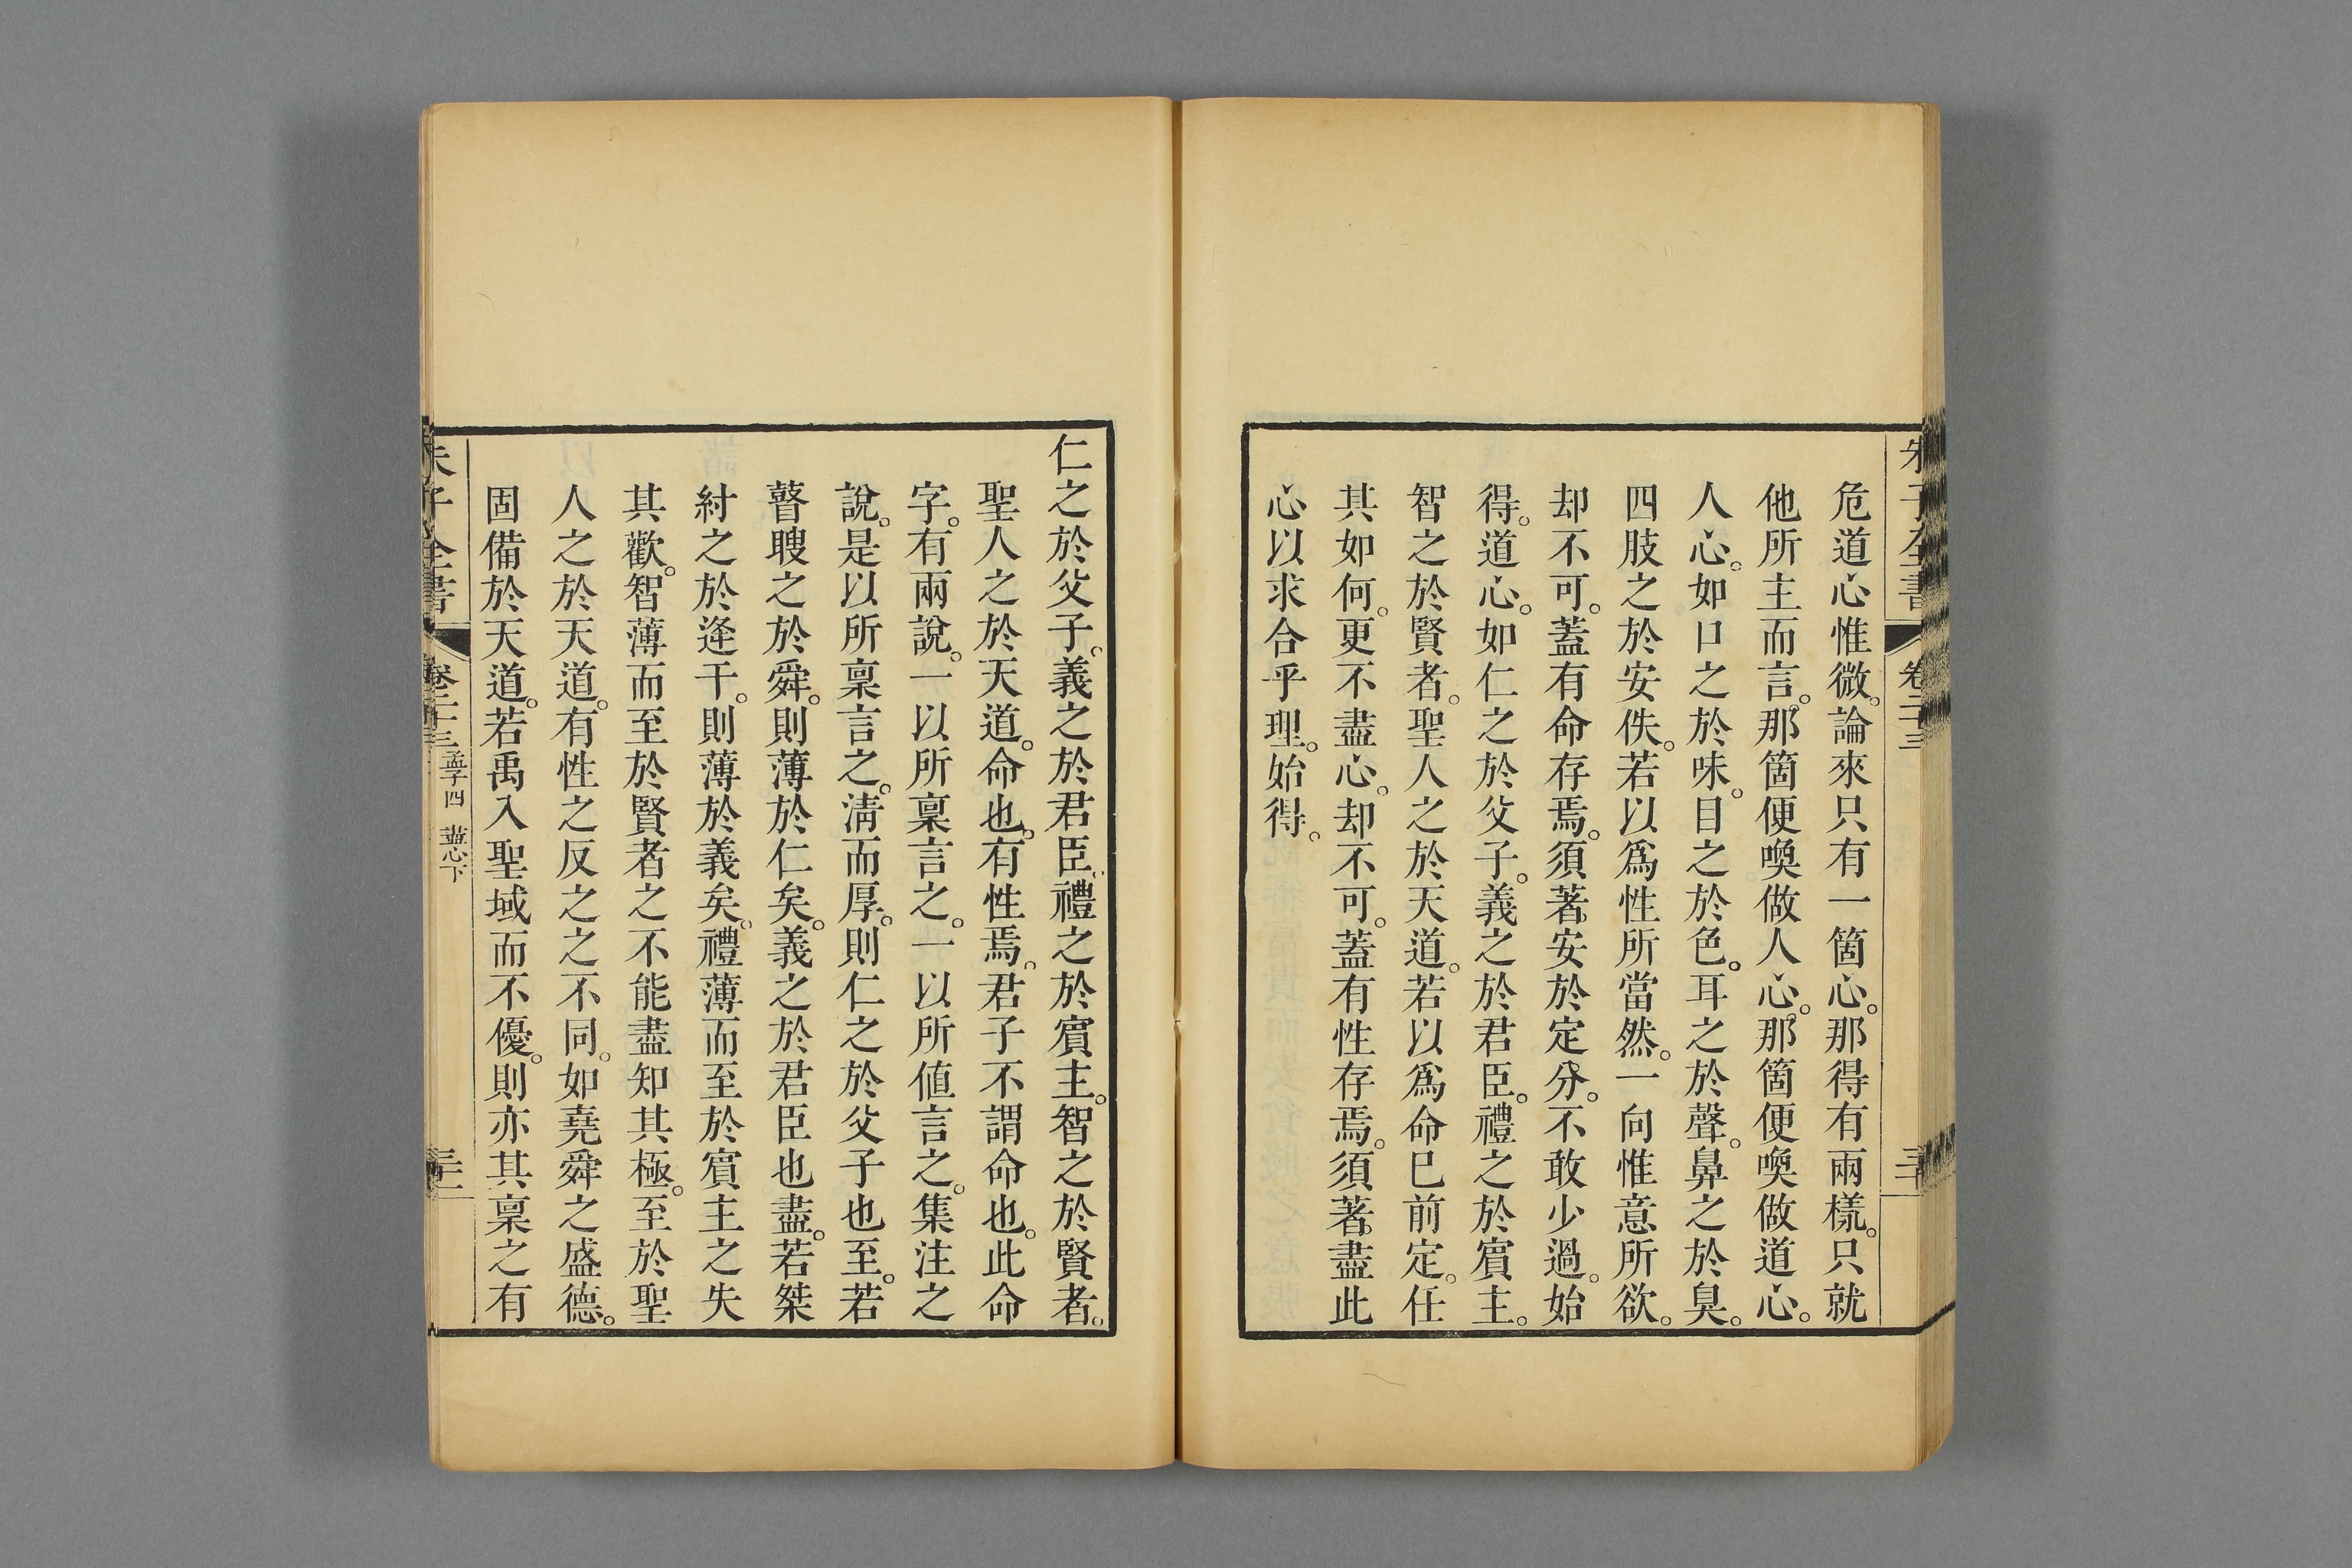 朱子全書 卷二十三
危道心惟微。論來只有一箇心。那得有兩樣。只就
他所主而言。那箇便喚做人心。那箇便喚做道心。
人心。如口之於味。目之於色。耳之於聲。鼻之於臭。
四肢之於安佚。若以爲性所當然。一向惟意所欲。
却不可。蓋有命存焉。須著安於定分。不敢少過。始
得。道心。如仁之於父子。義之於君臣。禮之於賓主。
智之於賢者。聖人之於天道。若以爲命已前定。任
其如何。更不盡心。却不可。蓋有性存焉。須著盡此
心以求合乎理。始得。
仁之於父子。義之於君臣。禮之於賓主。智之於賢者。
聖人之於天道。命也。有性焉。君子不謂命也。此命
字。有兩說。一以所稟言之。一以所値言之。集注之
說。是以所稟言之。淸而厚。則仁之於父子也至。若
瞽瞍之於舜。則薄於仁矣。義之於君臣也盡。若桀
紂之於逄干。則薄於義矣。禮薄而至於賓主之失
其歡。智薄而至於賢者之不能盡知其極。至於聖
人之於天道。有性之反之之不同。如堯舜之盛德。
固備於天道。若禹入聖域而不優。則亦其稟之有
朱子全書 卷二十三 孟子四 盡心下